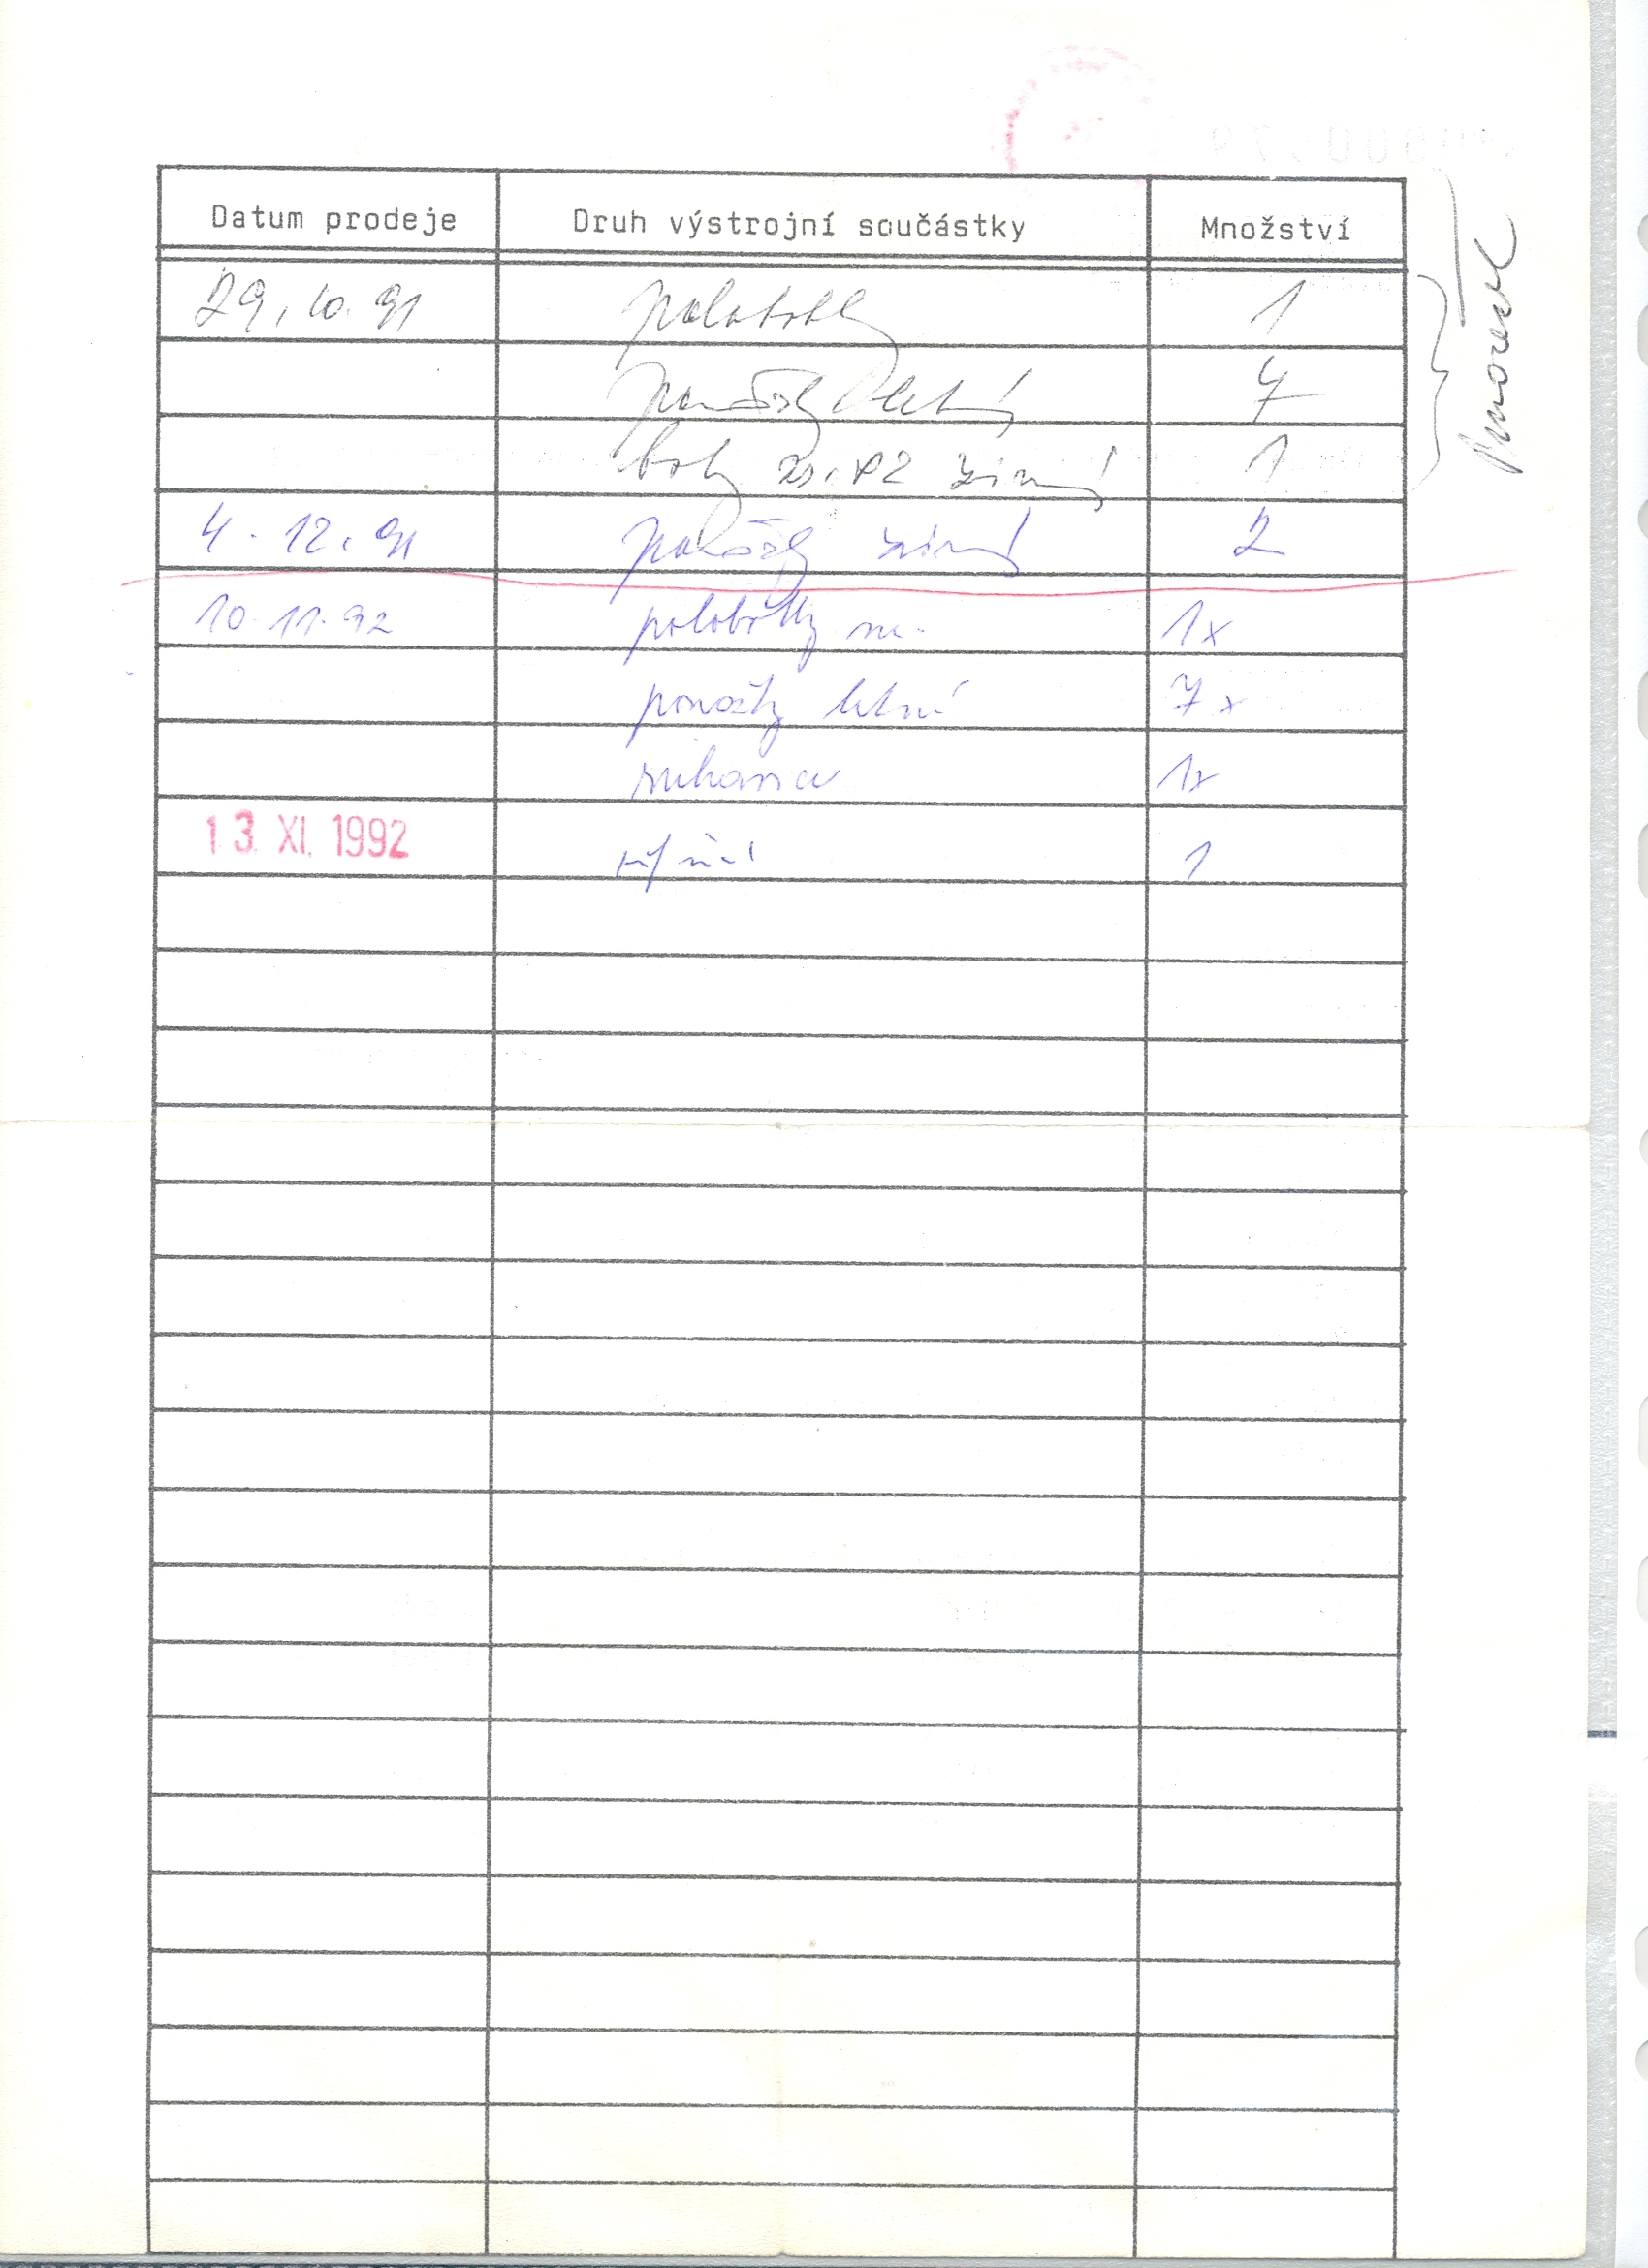 Datum prodeje Druh výstrojní součástky Množství
29. 10. 91 polobotky 1
ponožky letní 7
boty zimní 1
4. 12. 91 ponožky zimní 2
10. 11. 92 polobotky 1x
ponožky letní 7x
1x
13. XI. 1992 1